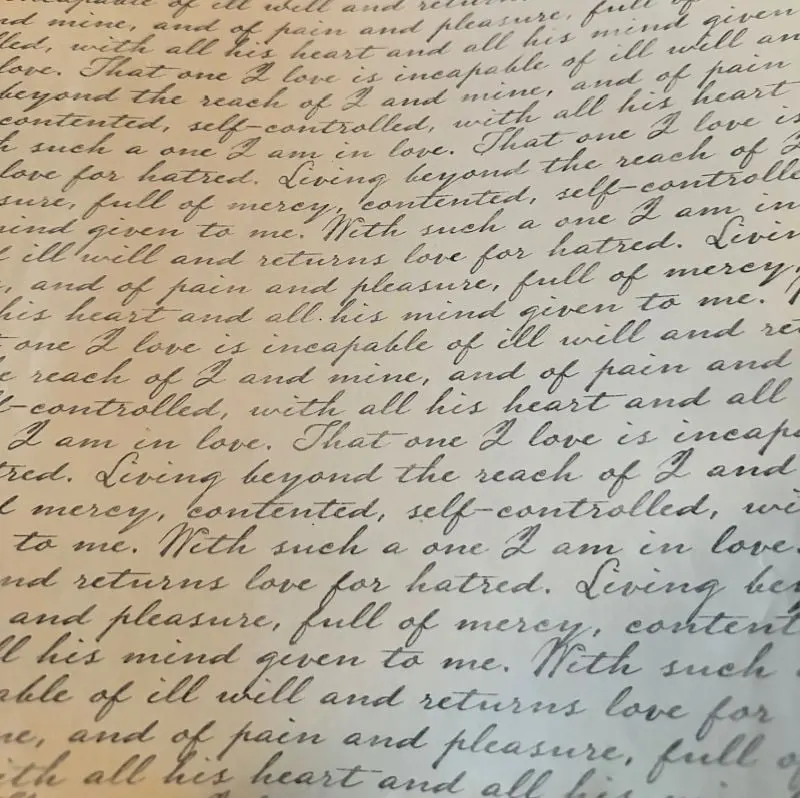 incapable of ill will and return
nd mine, and of pain and pleasure, full of
lled, with all his heart and all his mind given
love. That one I love is incapable of ill will an
beyond the reach of I and mine, and of pain
contented, self-controlled, with all his heart
h such a one I am in love. That one I love is
love for hatred. Living beyond the reach of I
sure, full of mercy, contented, self-controlle
mind given to me. With such a one I am in
l ill will and returns love for hatred. Livin
, and of pain and pleasure, full of mercy,
his heart and all his mind given to me.
t one I love is incapable of ill will and ret
e reach of I and mine, and of pain and
f-controlled, with all his heart and all
I am in love. That one I love is incap
tred. Living beyond the reach of I and
l mercy, contented, self-controlled, wi
to me. With such a one I am in love.
nd returns love for hatred. Living bey
and pleasure, full of mercy, content
ll his mind given to me. With such
able of ill will and returns love for
ne, and of pain and pleasure, full of
ith all his heart and all his